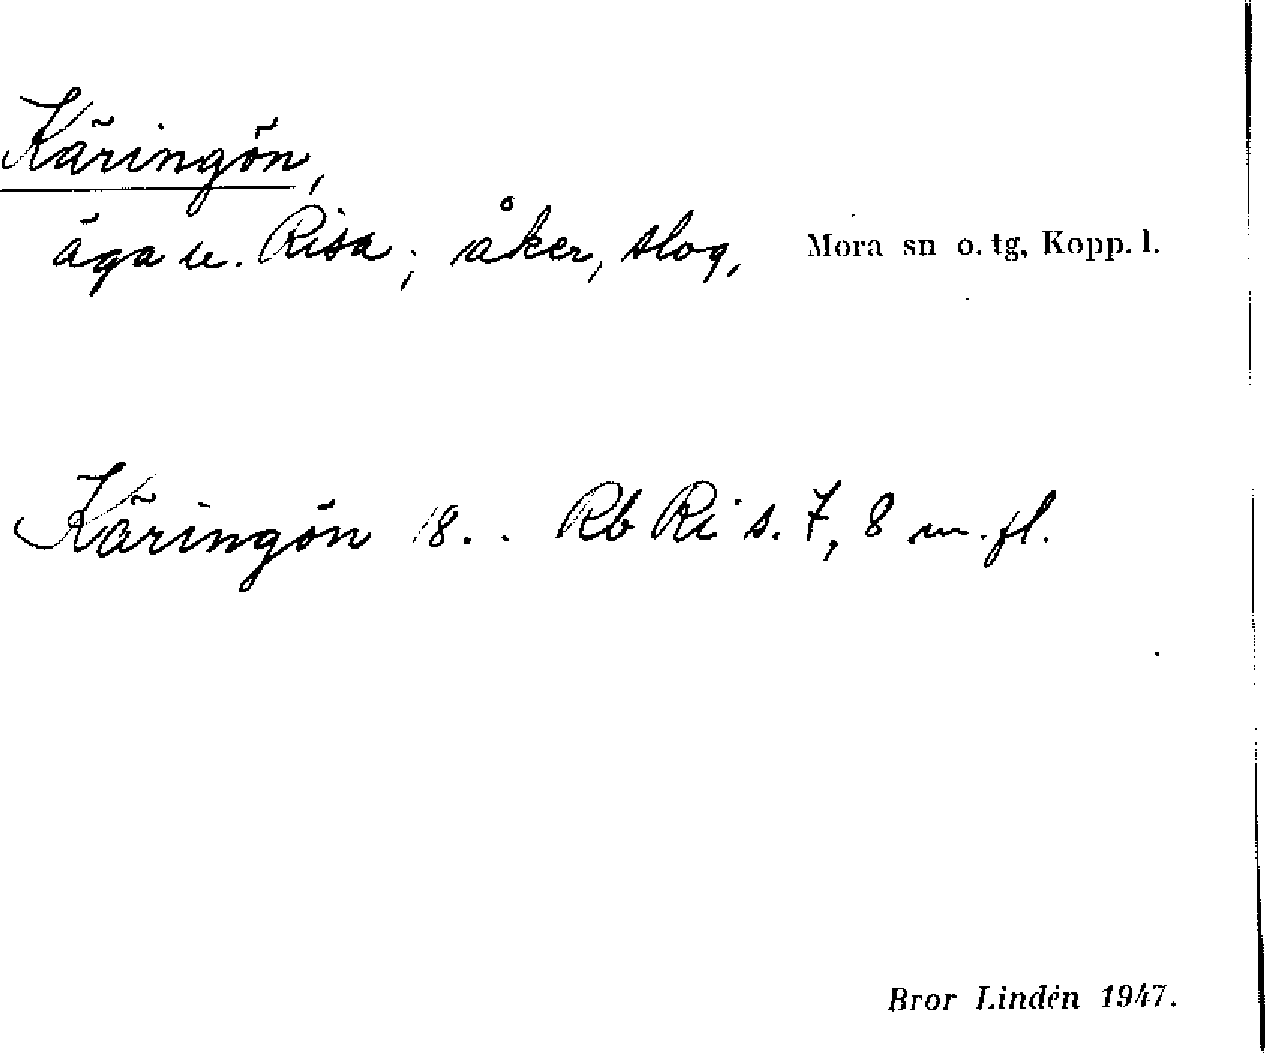 Käringön,
äga u. Risa; åker, slog, Mora sn o. tg, Kopp. l.
Käringön 18. . Rb Ri s. 7, 8 m. fl.
Bror Lindén 1947.